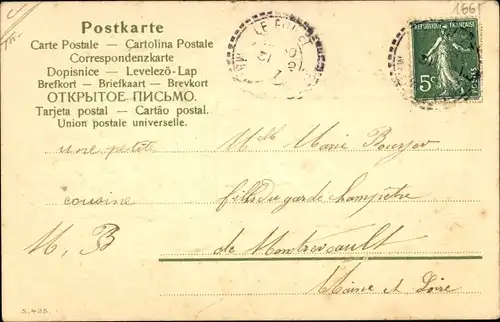 1665
Postkarte
Carte Postale — Cartolina Postale
Correspondenzkarte
Dopisnice — Levelezö-Lap
Brefkort — Briefkaart — Brevkort
ОТКРЫТОЕ ПИСЬМО.
Tarjeta postal — Cartão postal.
Union postale universelle.
LE
21
RÉPUBLIQUE FRANÇAISE
5c
POSTES
Melle Marie
une petite
cousine
fille du garde champêtre
M, B
de Montrevault
Maine et Loire
S. 495.